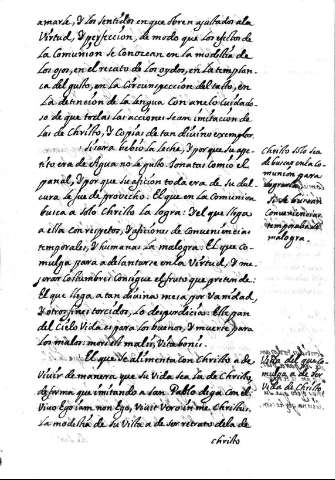 amarse, y los sentidos en que obren ajustados a la
Virtud, y perfeccion, de modo que los efectos de
la Comunion se Conozcan en la modestia de
los ojos, en el recato de los oydos, en la templan-
ça del gusto, en la Circunspeccion del tacto, en
la detencion de la lengua con anelo cuidado-
so de que todas las acciones sean imitacion de
las de Christo, y Copias de tan divino exemplar.
Sisara bebio la leche, y porque su ape-
tito era de Agua no le gusto. Jonatas Comio el
panal, y porque su aficion toda era de su dul-
cura le fue de provecho. El que en la Comunion
busca a solo Christo la logra: y el que llega
a ella con respetos, y aficiones de conveniencias
temporales, y humanas la malogra. El que co-
mulga para adelantarse en la Virtud, y me-
jorar Costumbres Consigue el fruto que pretende:
El que llega a tan divina mesa por Vanidad,
y otros fines torcidos, lo desperdicia: Este pan
del Cielo Vida es para los buenos, y muerte para
los malos: mors est malis, Vita bonis.
El que se alimenta con Christo a de
Vivir de manera que su Vida sea la de Christo,
de forma que imitando a san Pablo diga con el:
Vivo Ego iam non Ego, Vivit Vero in me Christus.
La modestia de su Vista a de ser retrato de la de
Christo
Christo solo sea
de buscar en la Co-
munion para
lograrla.
Si se buscan
Conveniencias
temporales se
malogra.
Vida del que Co-
mulga a de ser
Vida de Christo